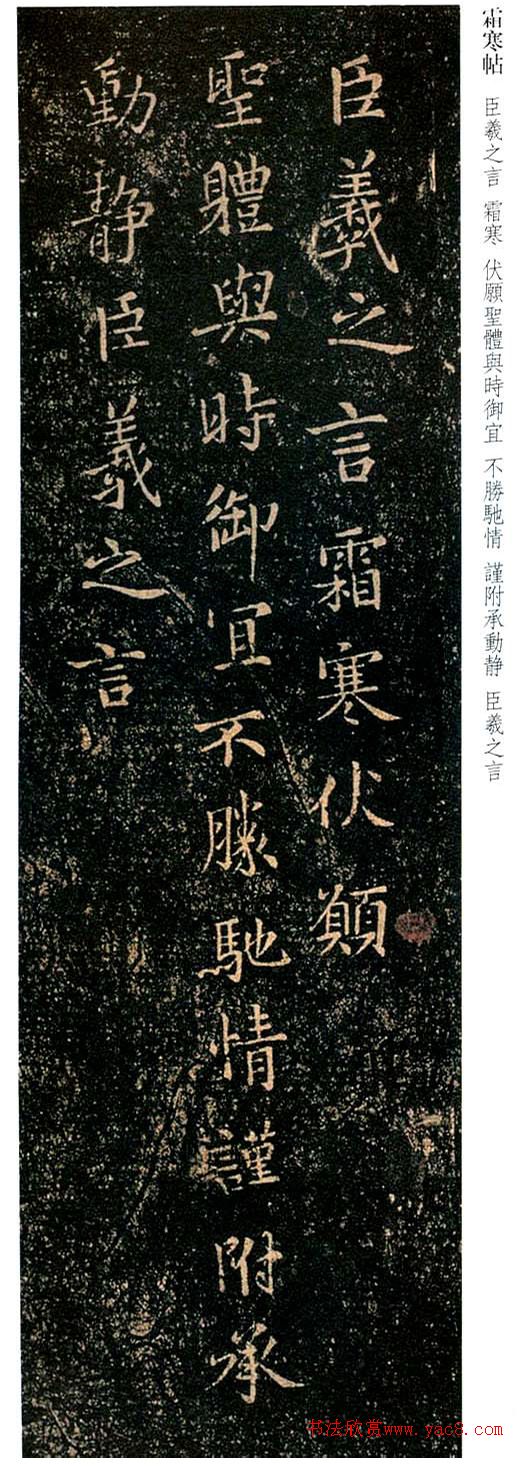 霜寒帖 臣羲之言 霜寒 伏願聖體與時御宜 不勝馳情 謹附承動静 臣羲之言
臣羲之言霜寒伏願
聖體與時御宜不勝馳情謹附承
動静臣羲之言
书法欣赏www.yac8.com